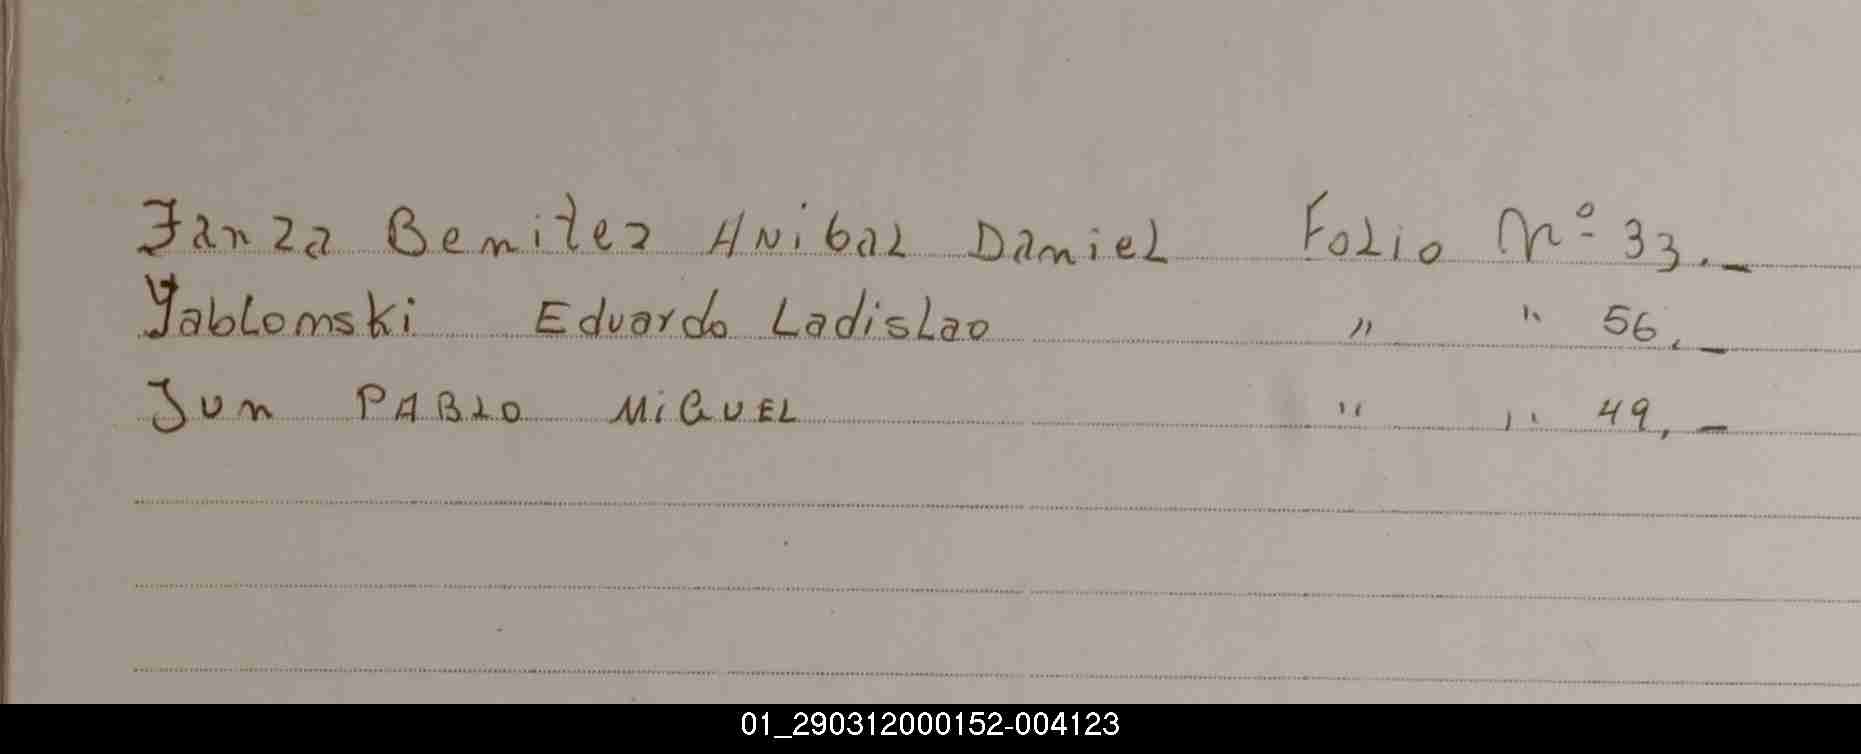 Janza Benitez Anibal Daniel Folio Nº 33.–
Yablomski Eduardo Ladislao " " 56.–
Jun PABLO MiGUEL " " 49,–
01_290312000152-004123